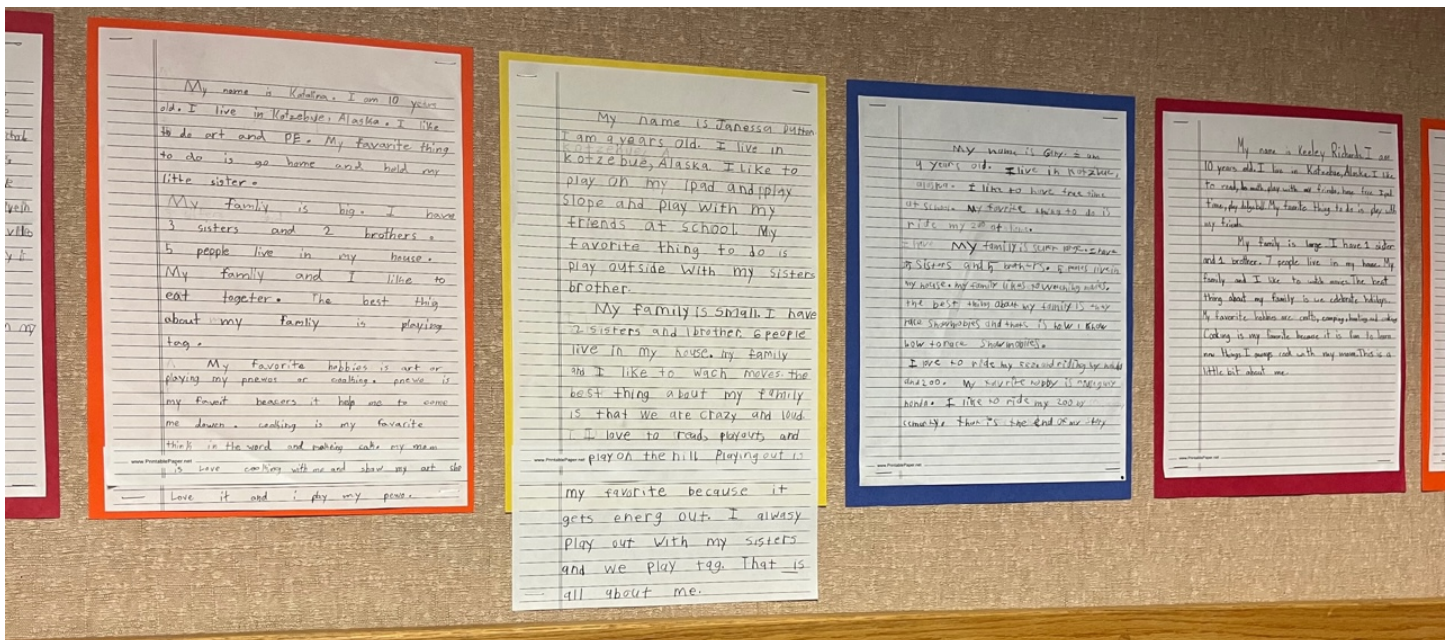 My name is Katalina. I am 10 years
old. I live in Kotzebue, Alaska. I like
to do art and PE. My favarite thing
to do is go home and hold my
litte sister.
My famliy is big. I have
3 sisters and 2 brothers.
5 people live in my house.
My famliy and I like to
eat togeter. The best thig
about my famliy is playing
tag.
My favorite hobbies is art or
playing my pnewos or cooking. pnewo is
my favorit beacers it help me to come
me dowen. cooking is my favarite
think in the word and making cake my mom
is Love cooking with me and show my art she
Love it and i play my pewo.
www.PrintablePaper.net
My name is Janessa Dutton
I am 9 years old. I live in
Kotzebue, Alaska. I Like to
play on my ipad and play
slope and play with my
friends at school. My
favorite thing to do is
play outside with my sisters
brother.
My family is small. I have
2 sisters and 1 brother. 6 people
live in my house. my family
and I like to wach moves. the
best thing about my family
is that we are crazy and loud.
I love to read, playout, and
play on the hill. Playing out is
www.PrintablePaper.net
my favorite because it
gets energ out. I alwasy
Play out with my sisters
and we play tag. That is
all about me.
My name is I am
9 years old. I live in Kotzbue,
alaska. I like to have free time
at school. My favorite thing to do is
ride my 200 at
My family is I have
sisters and 5 brothers. 8 live in
my house. my family likes to watching
the best thing about my family is they
race snowmobies and thats is how i know
how to race snowmobiles.
I love to ride my
and 200. My favorite hobby is
honda. I like to ride my 200
the end of my
www.PrintablePaper.net
My name is Keeley Richards. I am
10 years old. I live in Kotzebue, Alaska. I like
to read, do math, play with my friends, have free
time, play dodgeball. My favorite thing to do is play with
my friends.
My family is large. I have 1 sister
and 1 brother. 7 people live in my house. My
family and I like to watch movies. The best
thing about my family is we celebrate holidays.
My favorite hobbies are crafts, camping, hunting and cooking
Cooking is my favorite because it is fun to learn
new things. I always cook with my mom. This is a
little bit about me.
www.PrintablePaper.net